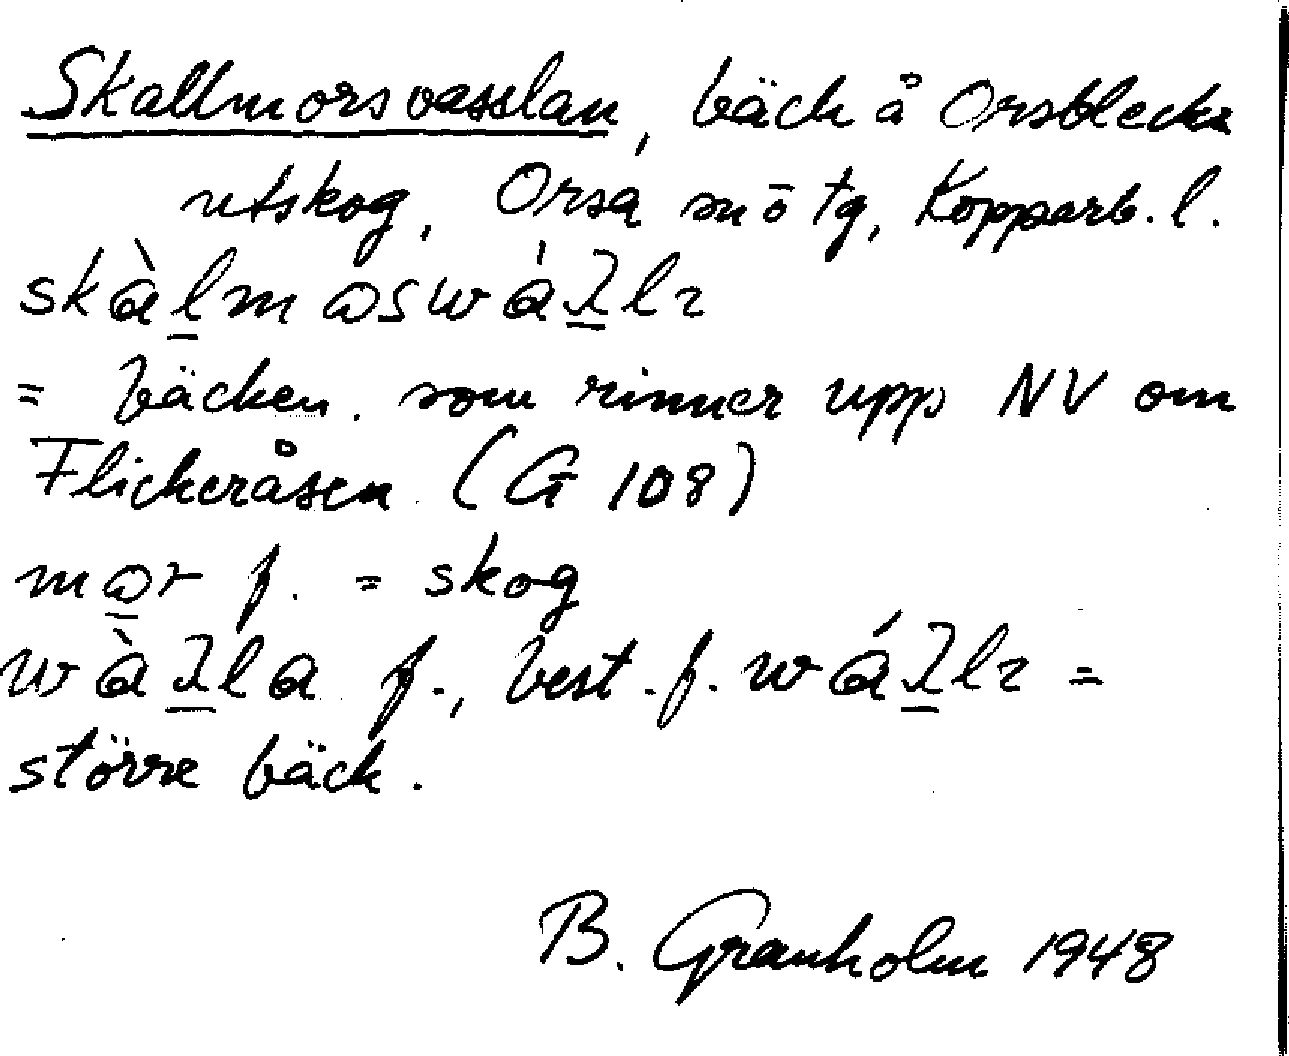 Skallmorsvasslan, bäck å Orsblecks
utskog, Orsa sn ö tg, Kopparb. l.
= bäcken som rinner upp NV om
Flickeråsen (G 108)
f. = skog
f., best. f. =
större bäck.
B. Granholm 1948